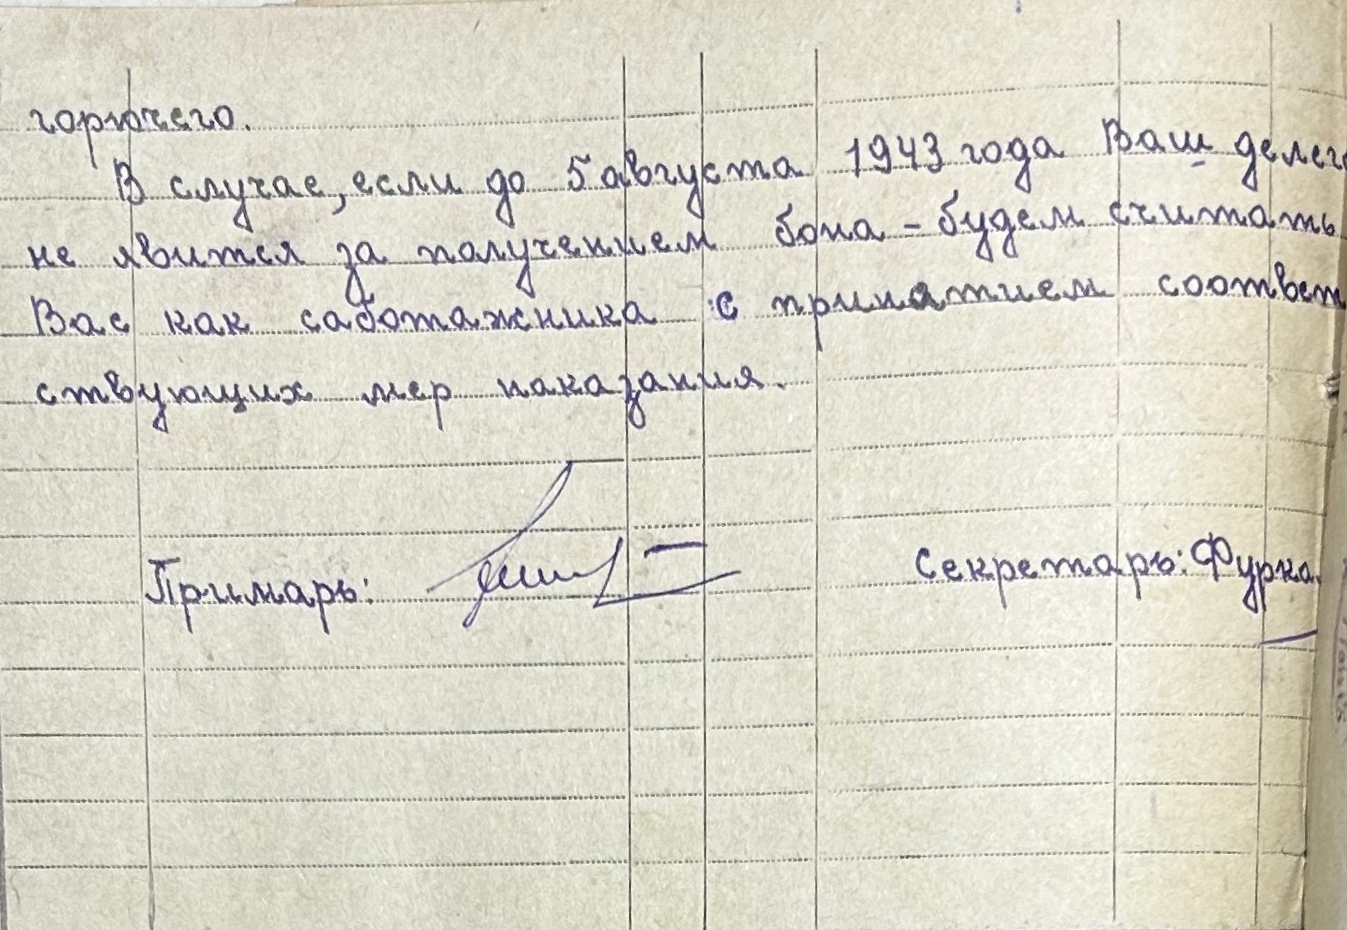 горючего.
В случае, если до 5 августа 1943 года Ваш делег
не явится за получением бона - будем считать
Вас как саботажника с принятием соответ
ствующих мер наказания.
Примарь: Секретарь: Фурка